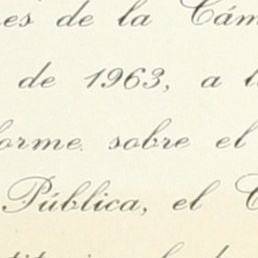 es de la Cám
de 1963, a l
forme sobre el
Pública, el C